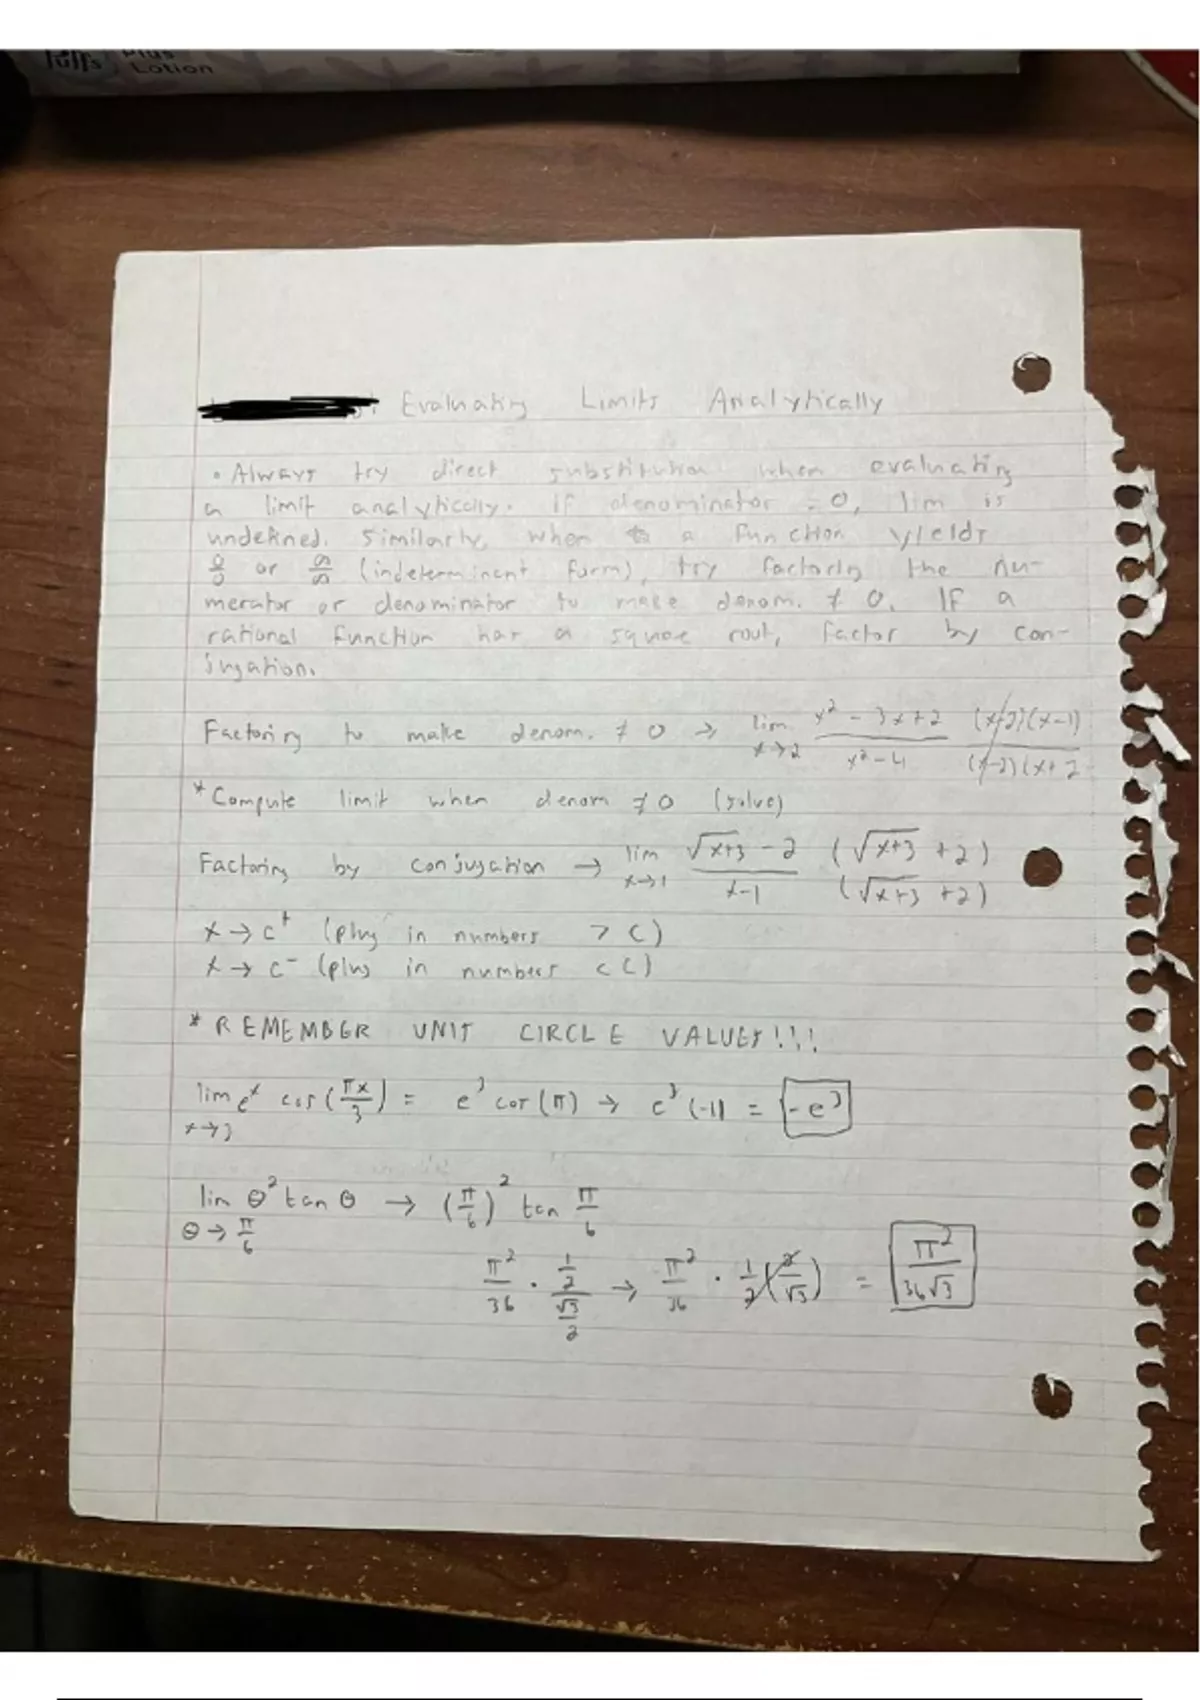 Puffs Plus
Lotion
Evaluating Limits Analytically
• Always try direct substitution when evaluating
a limit analytically. If denominator = 0, lim is
undefined. Similarly, when a function yields
0/0 or ∞/∞ (indeterminent form), try factoring the nu-
merator or denominator to make denom. ≠ 0. If a
rational function has a square root, factor by con-
jugation.
Factoring to make denom. ≠ 0 → lim x→2 (x² - 3x + 2)/(x² - 4) ((x-2)(x-1))/((x-2)(x+2
* Compute limit when denom ≠ 0 (solve)
Factoring by conjugation → lim x→1 (√(x+3) - 2)/(x-1) (√(x+3) + 2)/(√(x+3) + 2)
x → c⁺ (plug in numbers > c)
x → c⁻ (plug in numbers < c)
* REMEMBER UNIT CIRCLE VALUES!!!
lim x→3 eˣ cos(πx/3) = e³ cos(π) → e³(-1) = -e³
lin θ→π/6 θ² tan θ → (π/6)² tan π/6
π²/36 · (1/2)/(√3/2) → π²/36 · 1/2(2/√3) = π²/(36√3)